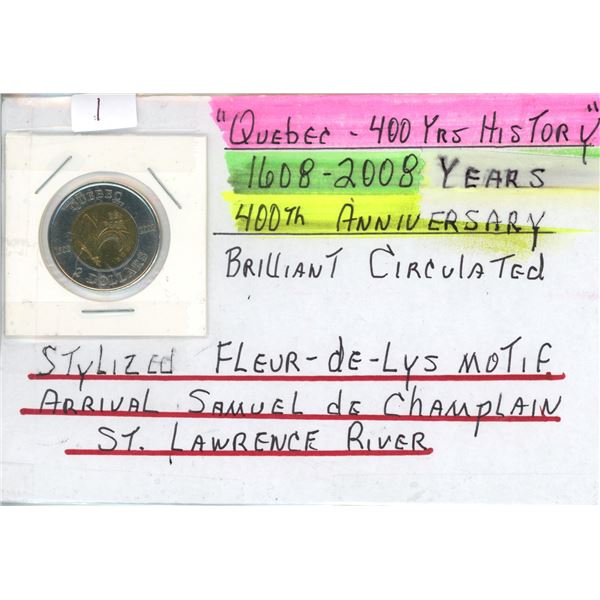 1
"Quebec - 400 Yrs History"
1608-2008 Years
400th Anniversary
Brilliant Circulated
QUEBEC
1608 2008
2 DOLLARS
Stylized Fleur-de-Lys motif
Arrival Samuel de Champlain
St. Lawrence River